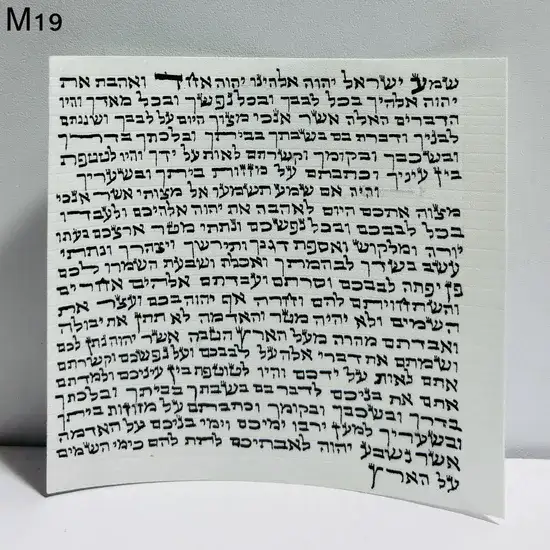 M19
שמע ישראל יהוה אלהינו יהוה אחד ואהבת את
יהוה אלהיך בכל לבבך ובכל נפשך ובכל מאדך והיו
הדברים האלה אשר אנכי מצוך היום על לבבך ושננתם
לבניך ודברת בם בשבתך בביתך ובלכתך בדרך
ובשכבך ובקומך וקשרתם לאות על ידך והיו לטטפת
בין עיניך וכתבתם על מזזות ביתך ובשעריך
והיה אם שמע תשמעו אל מצותי אשר אנכי
מצוה אתכם היום לאהבה את יהוה אלהיכם ולעבדו
בכל לבבכם ובכל נפשכם ונתתי מטר ארצכם בעתו
יורה ומלקוש ואספת דגנך ותירשך ויצהרך ונתתי
עשב בשדך לבהמתך ואכלת ושבעת השמרו לכם
פן יפתה לבבכם וסרתם ועבדתם אלהים אחרים
והשתחויתם להם וחרה אף יהוה בכם ועצר את
השמים ולא יהיה מטר והאדמה לא תתן את יבולה
ואבדתם מהרה מעל הארץ הטבה אשר יהוה נתן לכם
ושמתם את דברי אלה על לבבכם ועל נפשכם וקשרתם
אתם לאות על ידכם והיו לטוטפת בין עיניכם ולמדתם
אתם את בניכם לדבר בם בשבתך בביתך ובלכתך
בדרך ובשכבך ובקומך וכתבתם על מזוזות ביתך
ובשעריך למען ירבו ימיכם וימי בניכם על האדמה
אשר נשבע יהוה לאבתיכם לתת להם כימי השמים
על הארץ